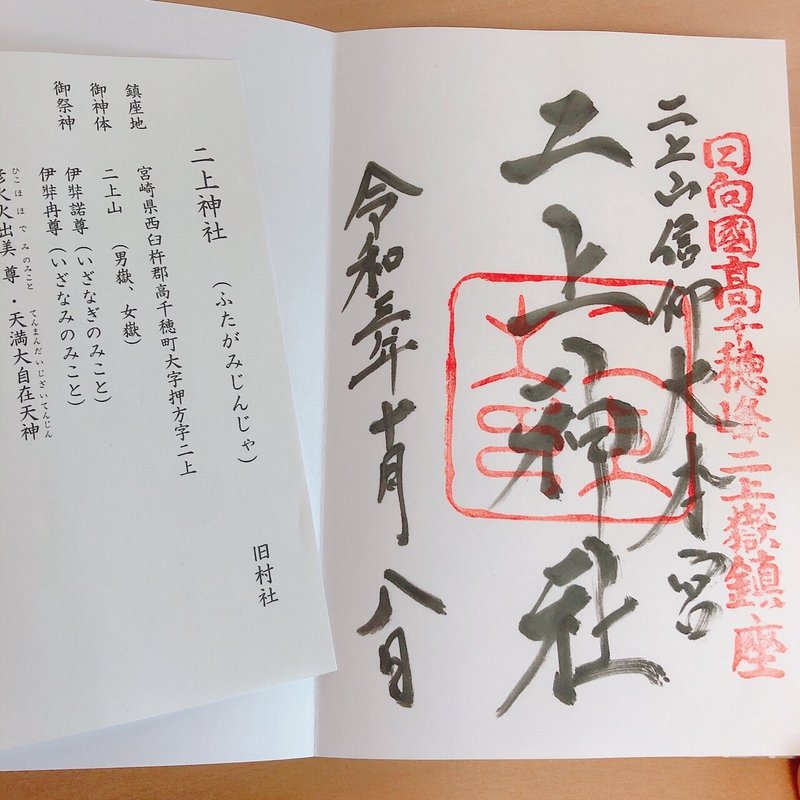 日向國高千穂峰二上嶽鎮座
二上山信仰大本宮
二上神社
令和三年十月八日
旧村社
二上神社 (ふたがみじんじゃ)
鎮座地 宮崎県西臼杵郡高千穂町大字押方字二上
御神体 二上山 (男嶽、女嶽)
御祭神 伊弉諾尊 (いざなぎのみこと)
伊弉冉尊 (いざなみのみこと)
彦火火出美尊・天満大自在天神
ひこほほでみのみこと てんまんだいじざいてんじん